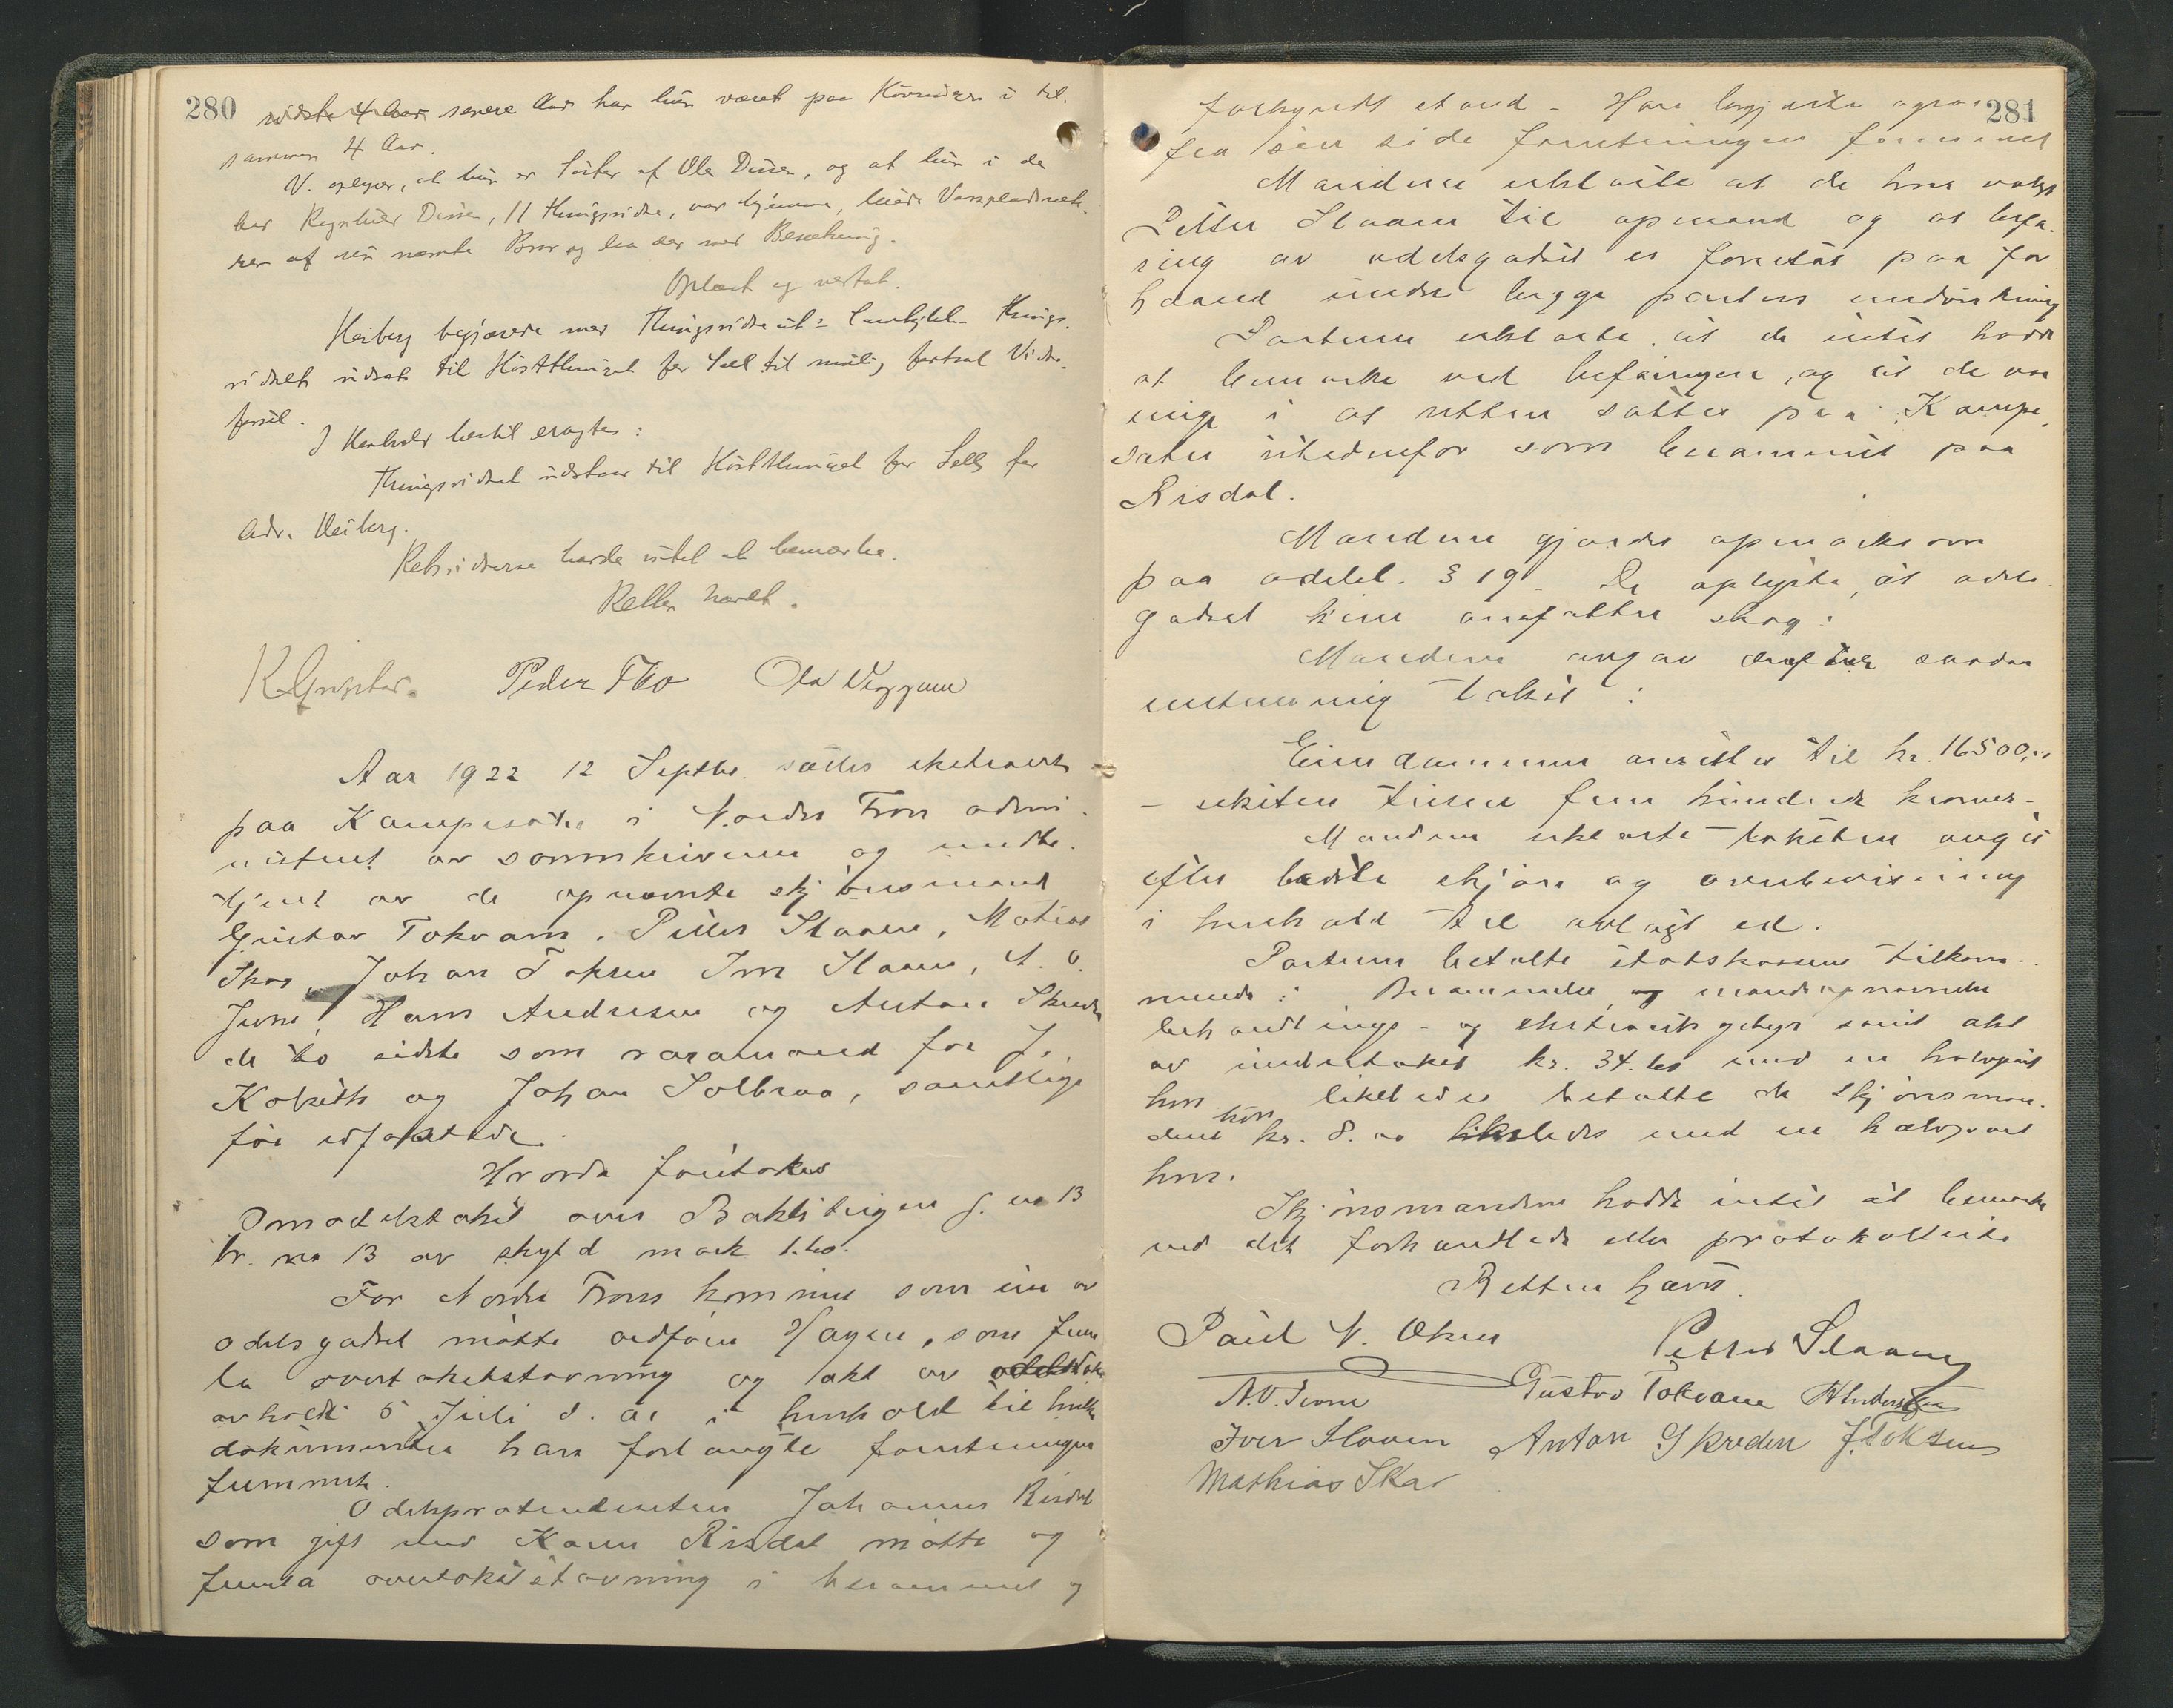 280
sidste 4 Aar senere Aar har hun været paa Kövringen i til-
sammen 4 Aar.
V. oplyser, at hun er Söster af Ole Dissen, og at hun i de
her Ragnhild Dissen, 11 Thingsvidne, var hjemme,
ner af sin nævnte Bror og laa der med Besætning.
Oplæst og vedtat.
Heiberg begjærede med Thingsvidne
vidnet udsat til Höstthinget for Sell til mulig fortsat Vidne-
førsel.
I Henhold hertil eragtes:
Thingsvidnet udstaar til Höstthinget for Sell for
Adv. Heiberg.
Retsvidnerne havde intet at bemærke.
Retten hævet.
Peder Tho Ola Veggum
Aar 1922 12 Septbr. sattes ekstraret
paa Kampesæter i Nordre Fron admi-
nistrert av sorenskriveren og medbe-
tjent av de opnævnte skjönsmænd
Gustav Tokvam, Petter Slaaen, Mathias
Skar, Johan Toksen Iver Slaaen, N. O.
Ivrne, Hans Andresen og Anton Skreden
de to sidste som varamænd for J.
Kokvik og Johan Solbraa, samtlige
før edfæstede.
Hvorda foretokes
Omodelstakst over Baklitrigen g. no 13
br. no 13 av skyld mark 1.40.
For Nordre Frons kommune som eier av
odelsgodset møtte ordfører Hagen, som frem-
la overtakststevning og akt av
avholdt 5 Juli d. aar i henhold til hvilke
dokumenter han forlangte forretningen
fremmet.
Odelspretendenten Johannes Risdal
som gift med Kari Risdal møtte og
fremla overtakststevning i berammet og
281
forkynnt stand. Han begjærte ogsaa
fra sin side forretningen fremmet
Mændene erklærte at de har valgt
Petter Slaaen til opmand og at befa-
ring av odelsgodset er foretat paa for-
haand under begge parters undvisning
Parterne erklærte at de intet hadde
at bemerke ved befaringen, og at de var
enige i at retten sættes paa Kampe-
sæter istedenfor som berammet paa
Risdal.
Mændene gjordes opmerksom
paa odelsl. § 19. De oplyste, at odels-
godset kun omfatter skog.
Mændene avgav derefter saadan
enstemmig takst:
Eiendommen ansættes til kr. 16500,00
- seksten tusen fem hundrede kroner -
Mændene erklærte taksten avgit
efter bedste skjön og overbevisning
i henhold til avlagt ed.
Parterne betalte statskassens tilkom-
mende: Berammelse og mandsopnævnelse
behandlings- og ekstraretsgebyr samt akt
av undertakst kr. 34.40 med en halvpart
hver likeledes betalte de skjönsmæn-
dene hver kr. 8.00 likeledes med en halvpart
hver.
Skjönsmændene hadde intet at bemerke
ved det forhandlede eller protokollerte
Retten hævet.
Paul N. Öksen Petter Slaaen
N.O. Ivrne Gustav Tokvam H Andresen
Iver Slaaen Anton Skreden J. Toksen
Mathias Skar